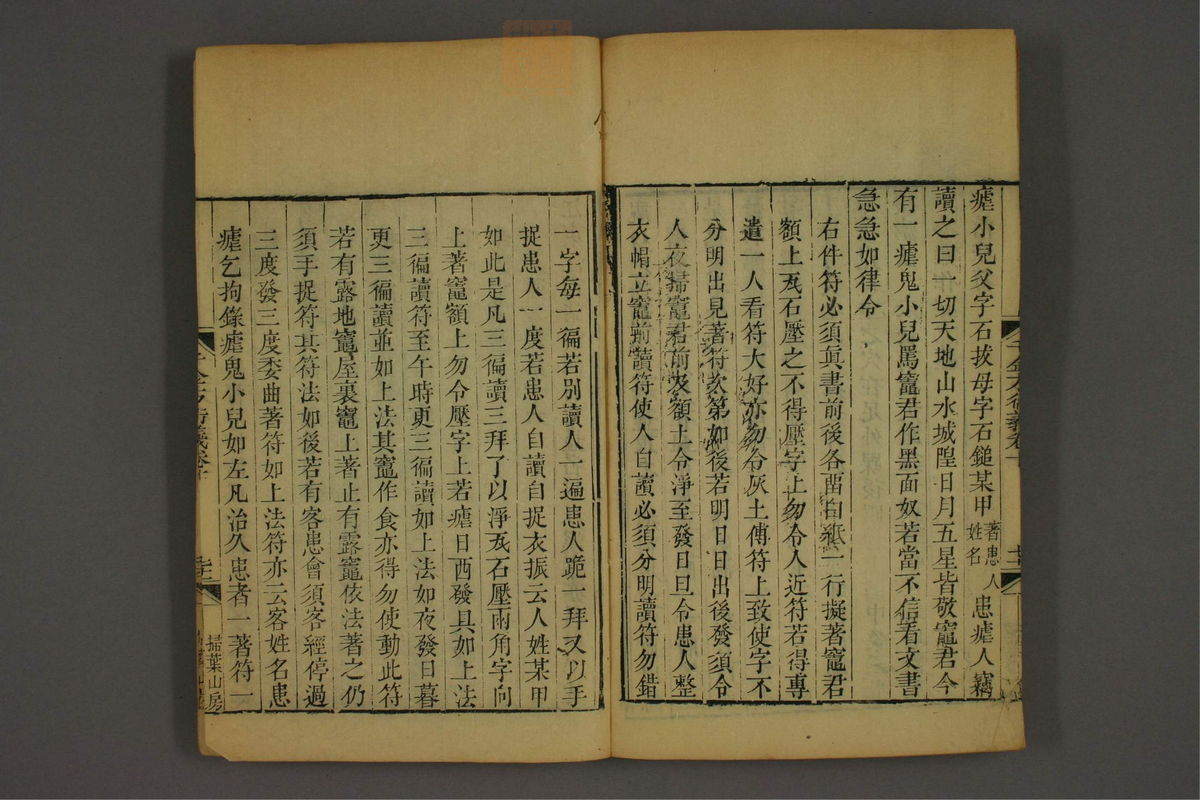 瘧小兒父字石拔母字石鎚某甲著患人姓名患瘧人竊
讀之曰一切天地山水城隍日月五星皆敬竈君今
有一瘧鬼小兒罵竈君作黑面奴若當不信看文書
急急如律令
右件符必須眞書前後各畱白紙一行擬著竈君
額上瓦石壓之不得壓字上勿令人近符若得專
遣一人看符大好亦勿令灰土傅符上致使字不
分明出見著符次第如後若明日日出後發須令
人夜掃竈君前及額上令淨至發日旦令患人整
衣帽立竈前讀符使人自讀必須分明讀符勿錯
一字每一徧若別讀人一遍患人跪一拜又以手
捉患人一度若患人自讀自捉衣振云人姓某甲
如此是凡三徧讀三拜了以淨瓦石壓兩角字向
上著竈額上勿令壓字上若瘧日西發具如上法
三徧讀符至午時更三徧讀如上法如夜發日暮
更三徧讀並如上法其竈作食亦得勿使動此符
若有露地竈屋裏竈上著止有露竈依法著之仍
須手捉符其符法如後若有客患會須客經停過
三度發三度委曲著符如上法符亦云客姓名患
瘧乞拘錄瘧鬼小兒如左凡治久患者一著符一
掃葉山房